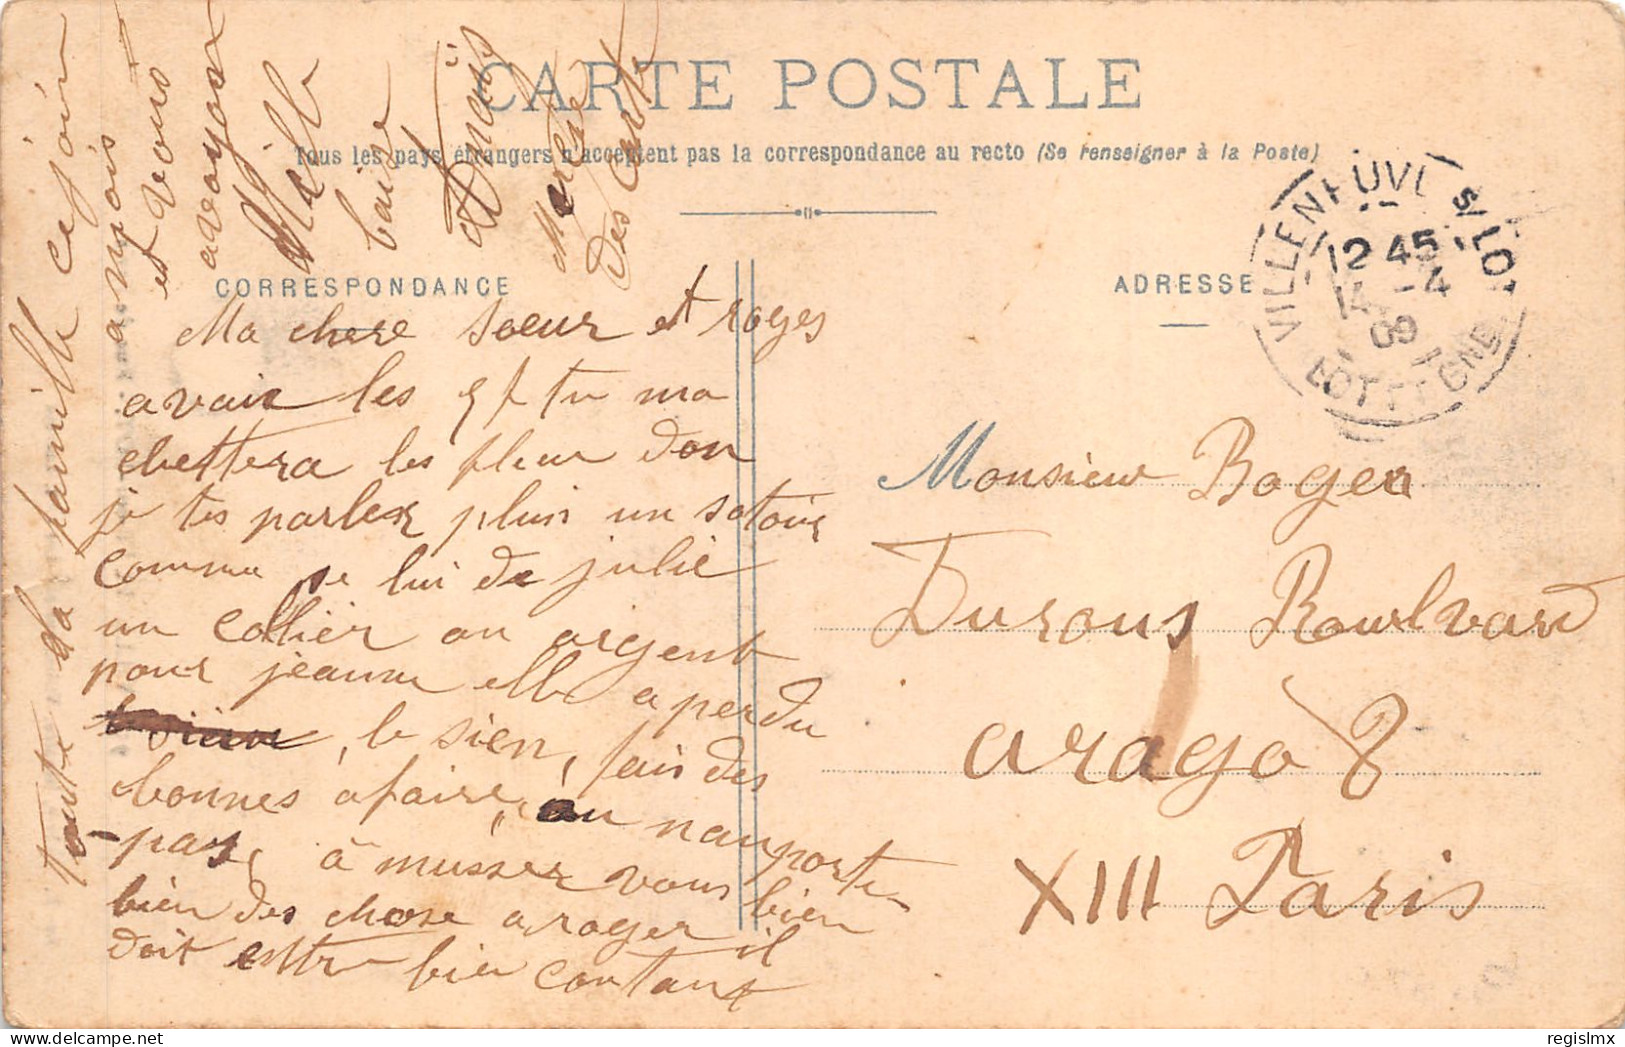 CARTE POSTALE
Tous les pays étrangers n'acceptent pas la correspondance au recto (Se renseigner à la Poste)
CORRESPONDANCE
ADRESSE
VILLENEUVE S/LOT
12 45
14 -4
09
LOT ET GNE
Ma chere Soeur et roges
avair les tu ma
chettera les fleur don
je tes parler plin un sotoir
comme se lui de julie
un collier an argent
pour jeanne elle a perdu
le sien, fais des
bonnes afaire, an nanporte
pas, à musser vous bien
bien des chose a roger il
doit esttre bien contant
toute la famille ce join
a mois
et vous
avoyon
Mille
baise
Amelis
Merci
des carte
Monsieur Roger
Durous Boulvard
arago 8
XIII Paris
regislmx